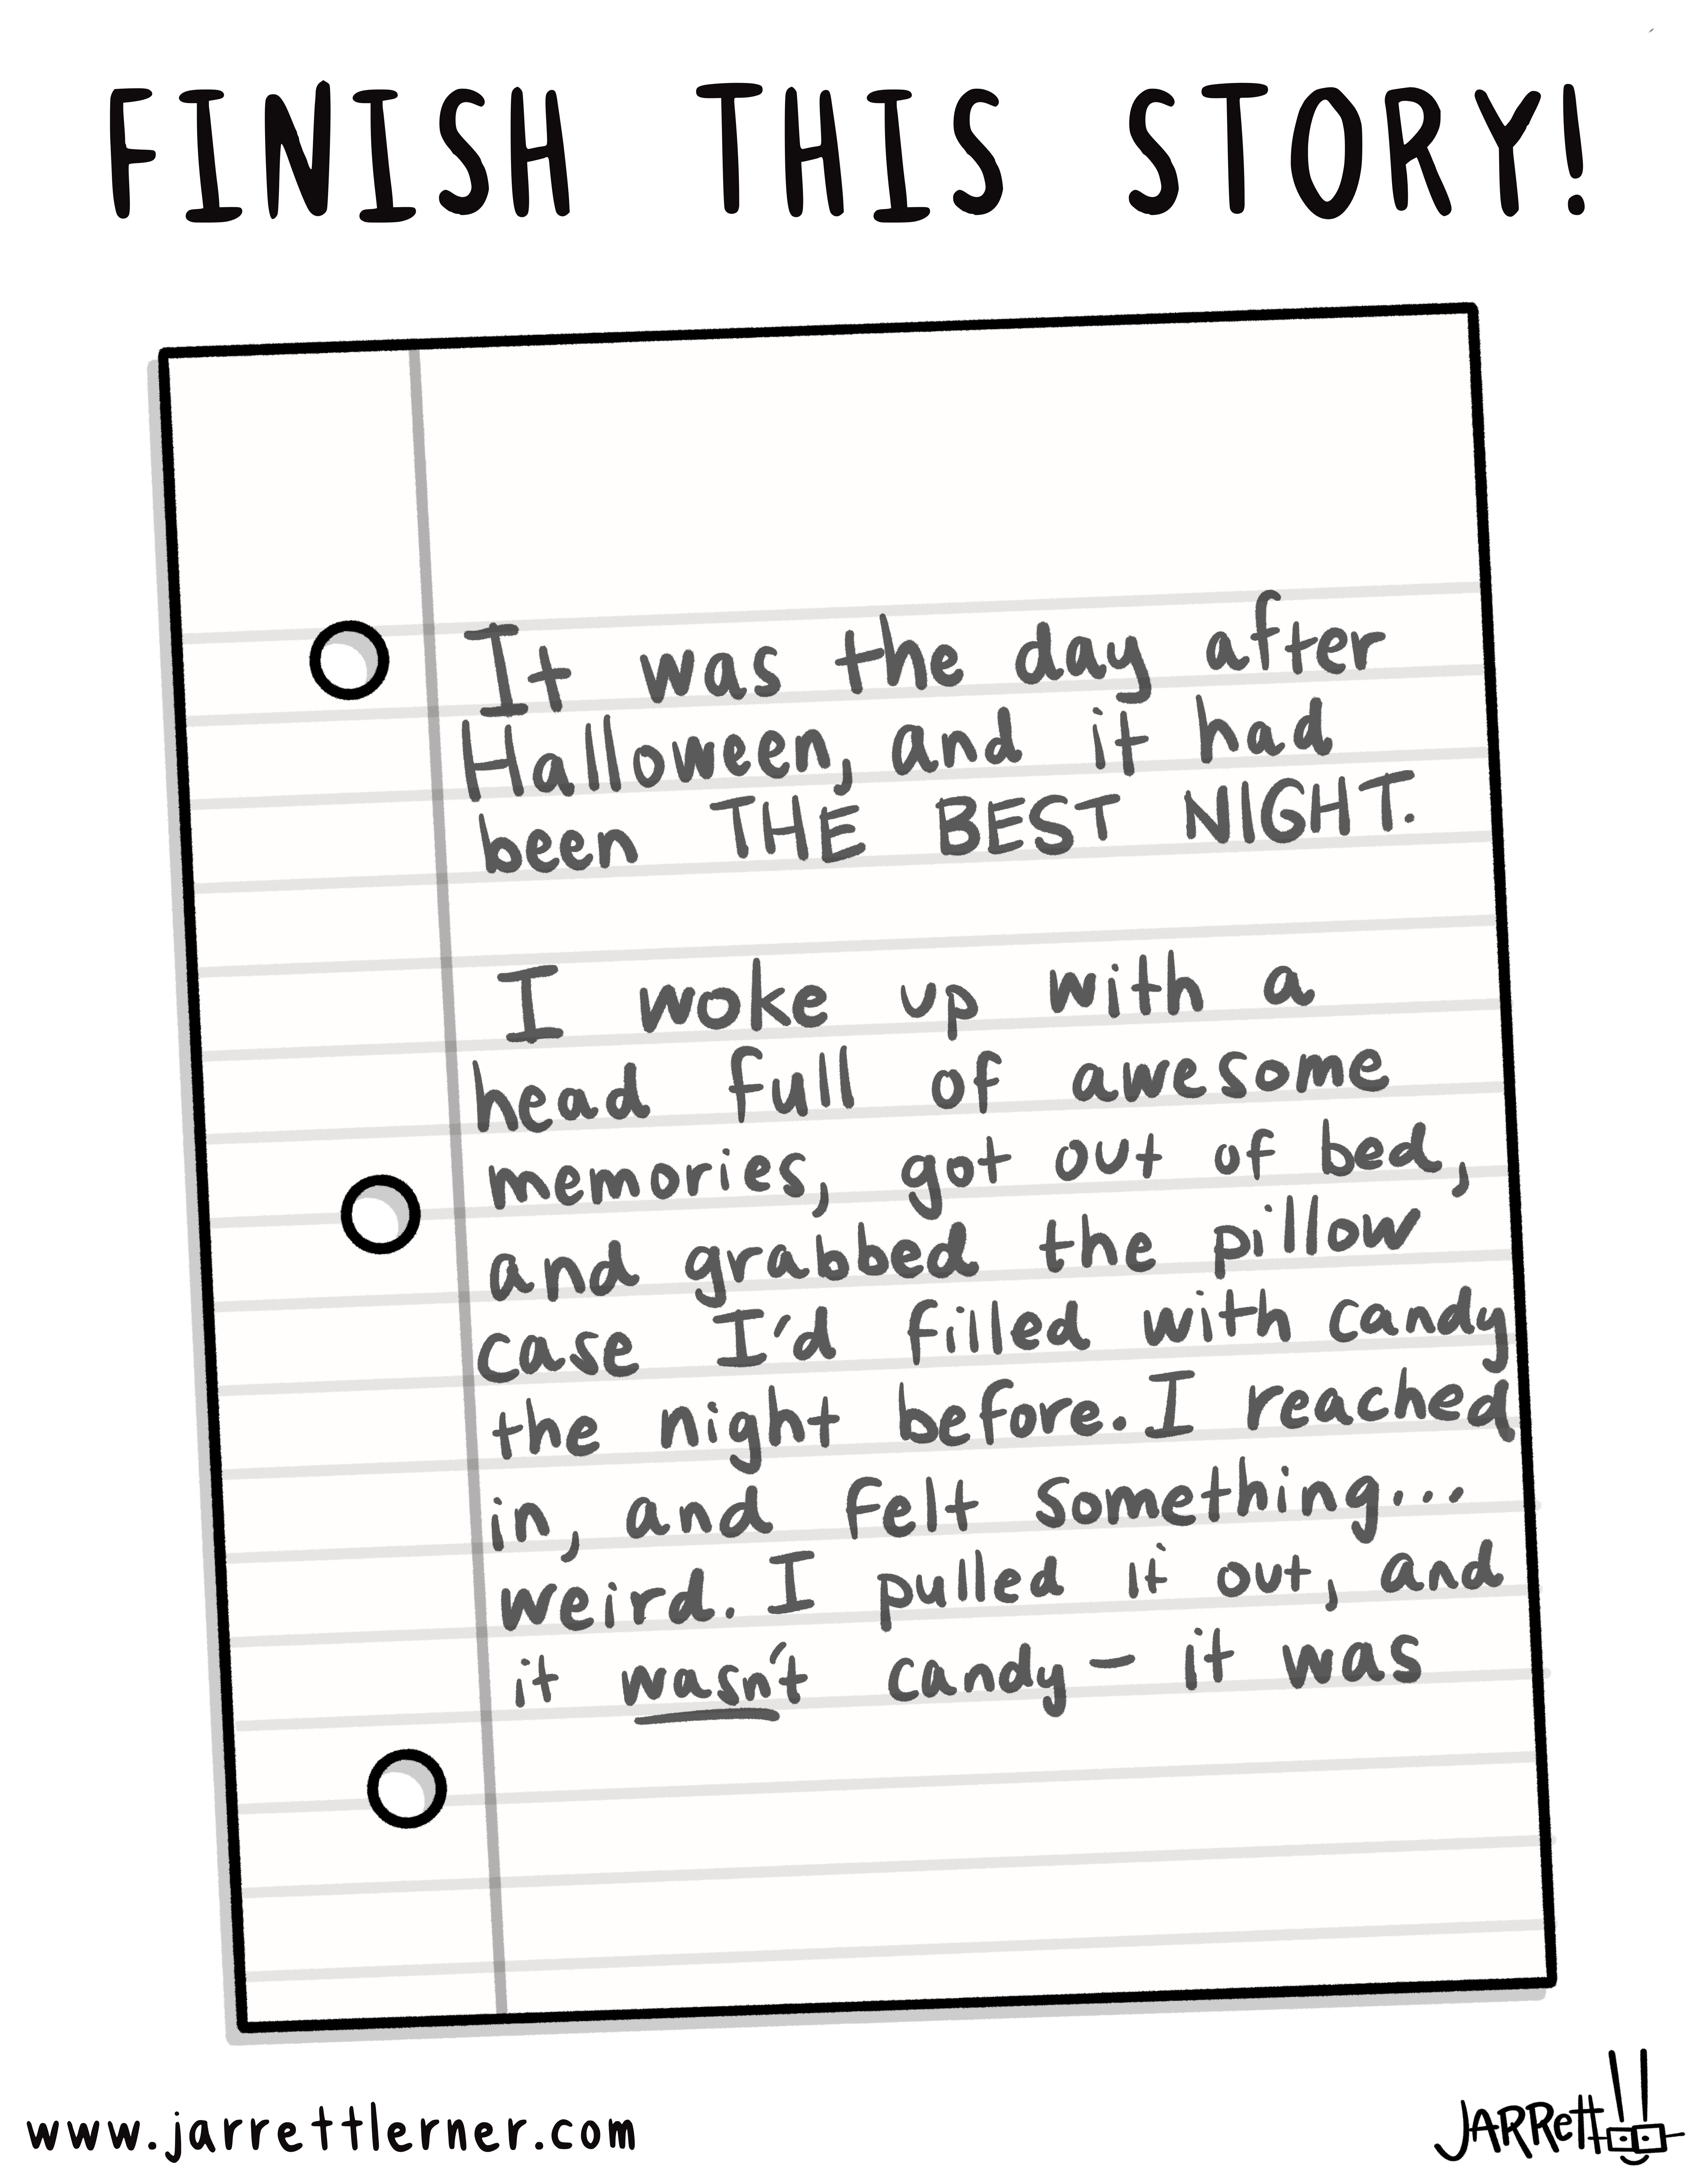 FINISH THIS STORY!
It was the day after
Halloween, and it had
been THE BEST NIGHT.
I woke up with a
head full of awesome
memories, got out of bed,
and grabbed the pillow
case I'd filled with candy
the night before. I reached
in, and felt something...
weird. I pulled it out, and
it wasn't candy – it was
www.jarrettlerner.com
JARRETT!!